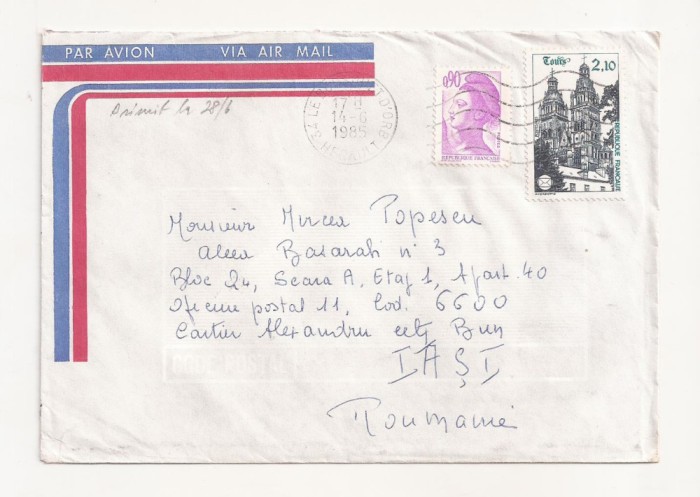 PAR AVION VIA AIR MAIL
Primit la 28/6
17 H
14-6
1985
34 HERAULT
0,90
REPUBLIQUE FRANÇAISE
Tours 2,10
REPUBLIQUE FRANÇAISE
Monsieur Mircea Popescu
Aleea Basarabi n° 3
Bloc 24, Scara A, Etaj 1, Apart. 40
Oficiu postal 11, Cod. 6600
Cartier Alexandru cel Bun
IAȘI
Roumanie